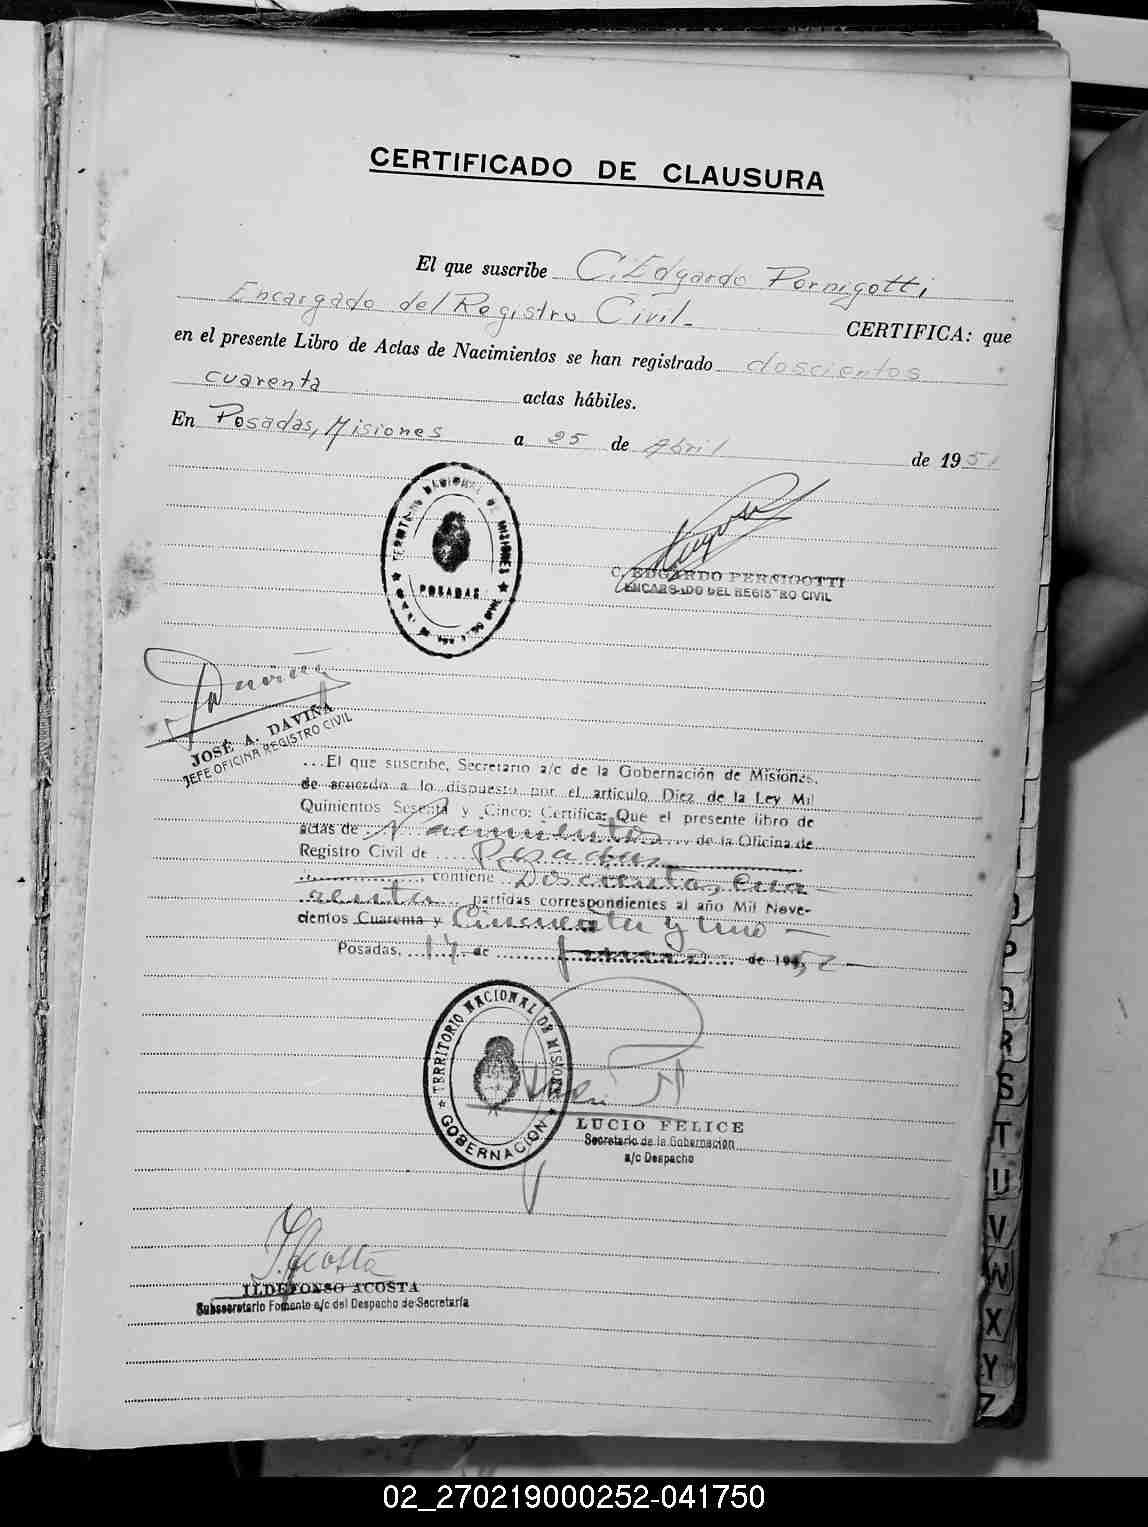 CERTIFICADO DE CLAUSURA
El que suscribe C. Edgardo Pernigotti,
Encargado del Registro Civil.
CERTIFICA: que
en el presente Libro de Actas de Nacimientos se han registrado doscientos
cuarenta actas hábiles.
En Posadas, Misiones a 25 de Abril de 1951
TERRITORIO NACIONAL DE MISIONES
POSADAS
C. EDGARDO PERNIGOTTI
ENCARGADO DEL REGISTRO CIVIL
Daviña
JOSÉ A. DAVIÑA
JEFE OFICINA REGISTRO CIVIL
...El que suscribe, Secretario a/c de la Gobernación de Misiones,
de acuerdo a lo dispuesto por el artículo Diez de la Ley Mil
Quinientos Sesenta y Cinco: Certifica: Que el presente libro de
actas de Nacimientos de la Oficina de
Registro Civil de Posadas
contiene Doscientos, cua-
renta partidas correspondientes al año Mil Nove-
cientos Cuarenta y Cincuenta y uno —
Posadas, 17 de de 1952 —
TERRITORIO NACIONAL DE MISIONES
GOBERNACION
LUCIO FELICE
Secretario de la Gobernacion
a/c Despacho
I. Acosta
ILDEFONSO ACOSTA
Subsecretario Fomento a/c del Despacho de Secretaría
P
Q
R
S
T
U
V
W
X
Y
Z
02_270219000252-041750